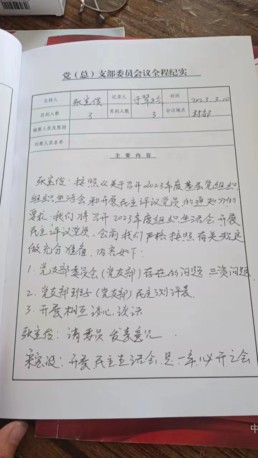 党（总）支部委员会议全程纪实
主持人 记录人 时间
应到人数 3 实到人数 3 会议地点
列席人员及职务
缺席人员名单
主 要 内 容
按照《关于召开2023年度基层党组织
组织生活会和开展民主评议党员的通知》的
要求，我们将召开2023年度组织生活会开展
民主评议党员，会前我们严格按照有关规定
做充分准备，内容如下：
1. 党支部委员会（党支部）存在的问题
2. 党支部班子（党支部）民主测评表
3. 开展相互谈心谈话
请委员发表意见
开展民主生活会是一年必开之会
中